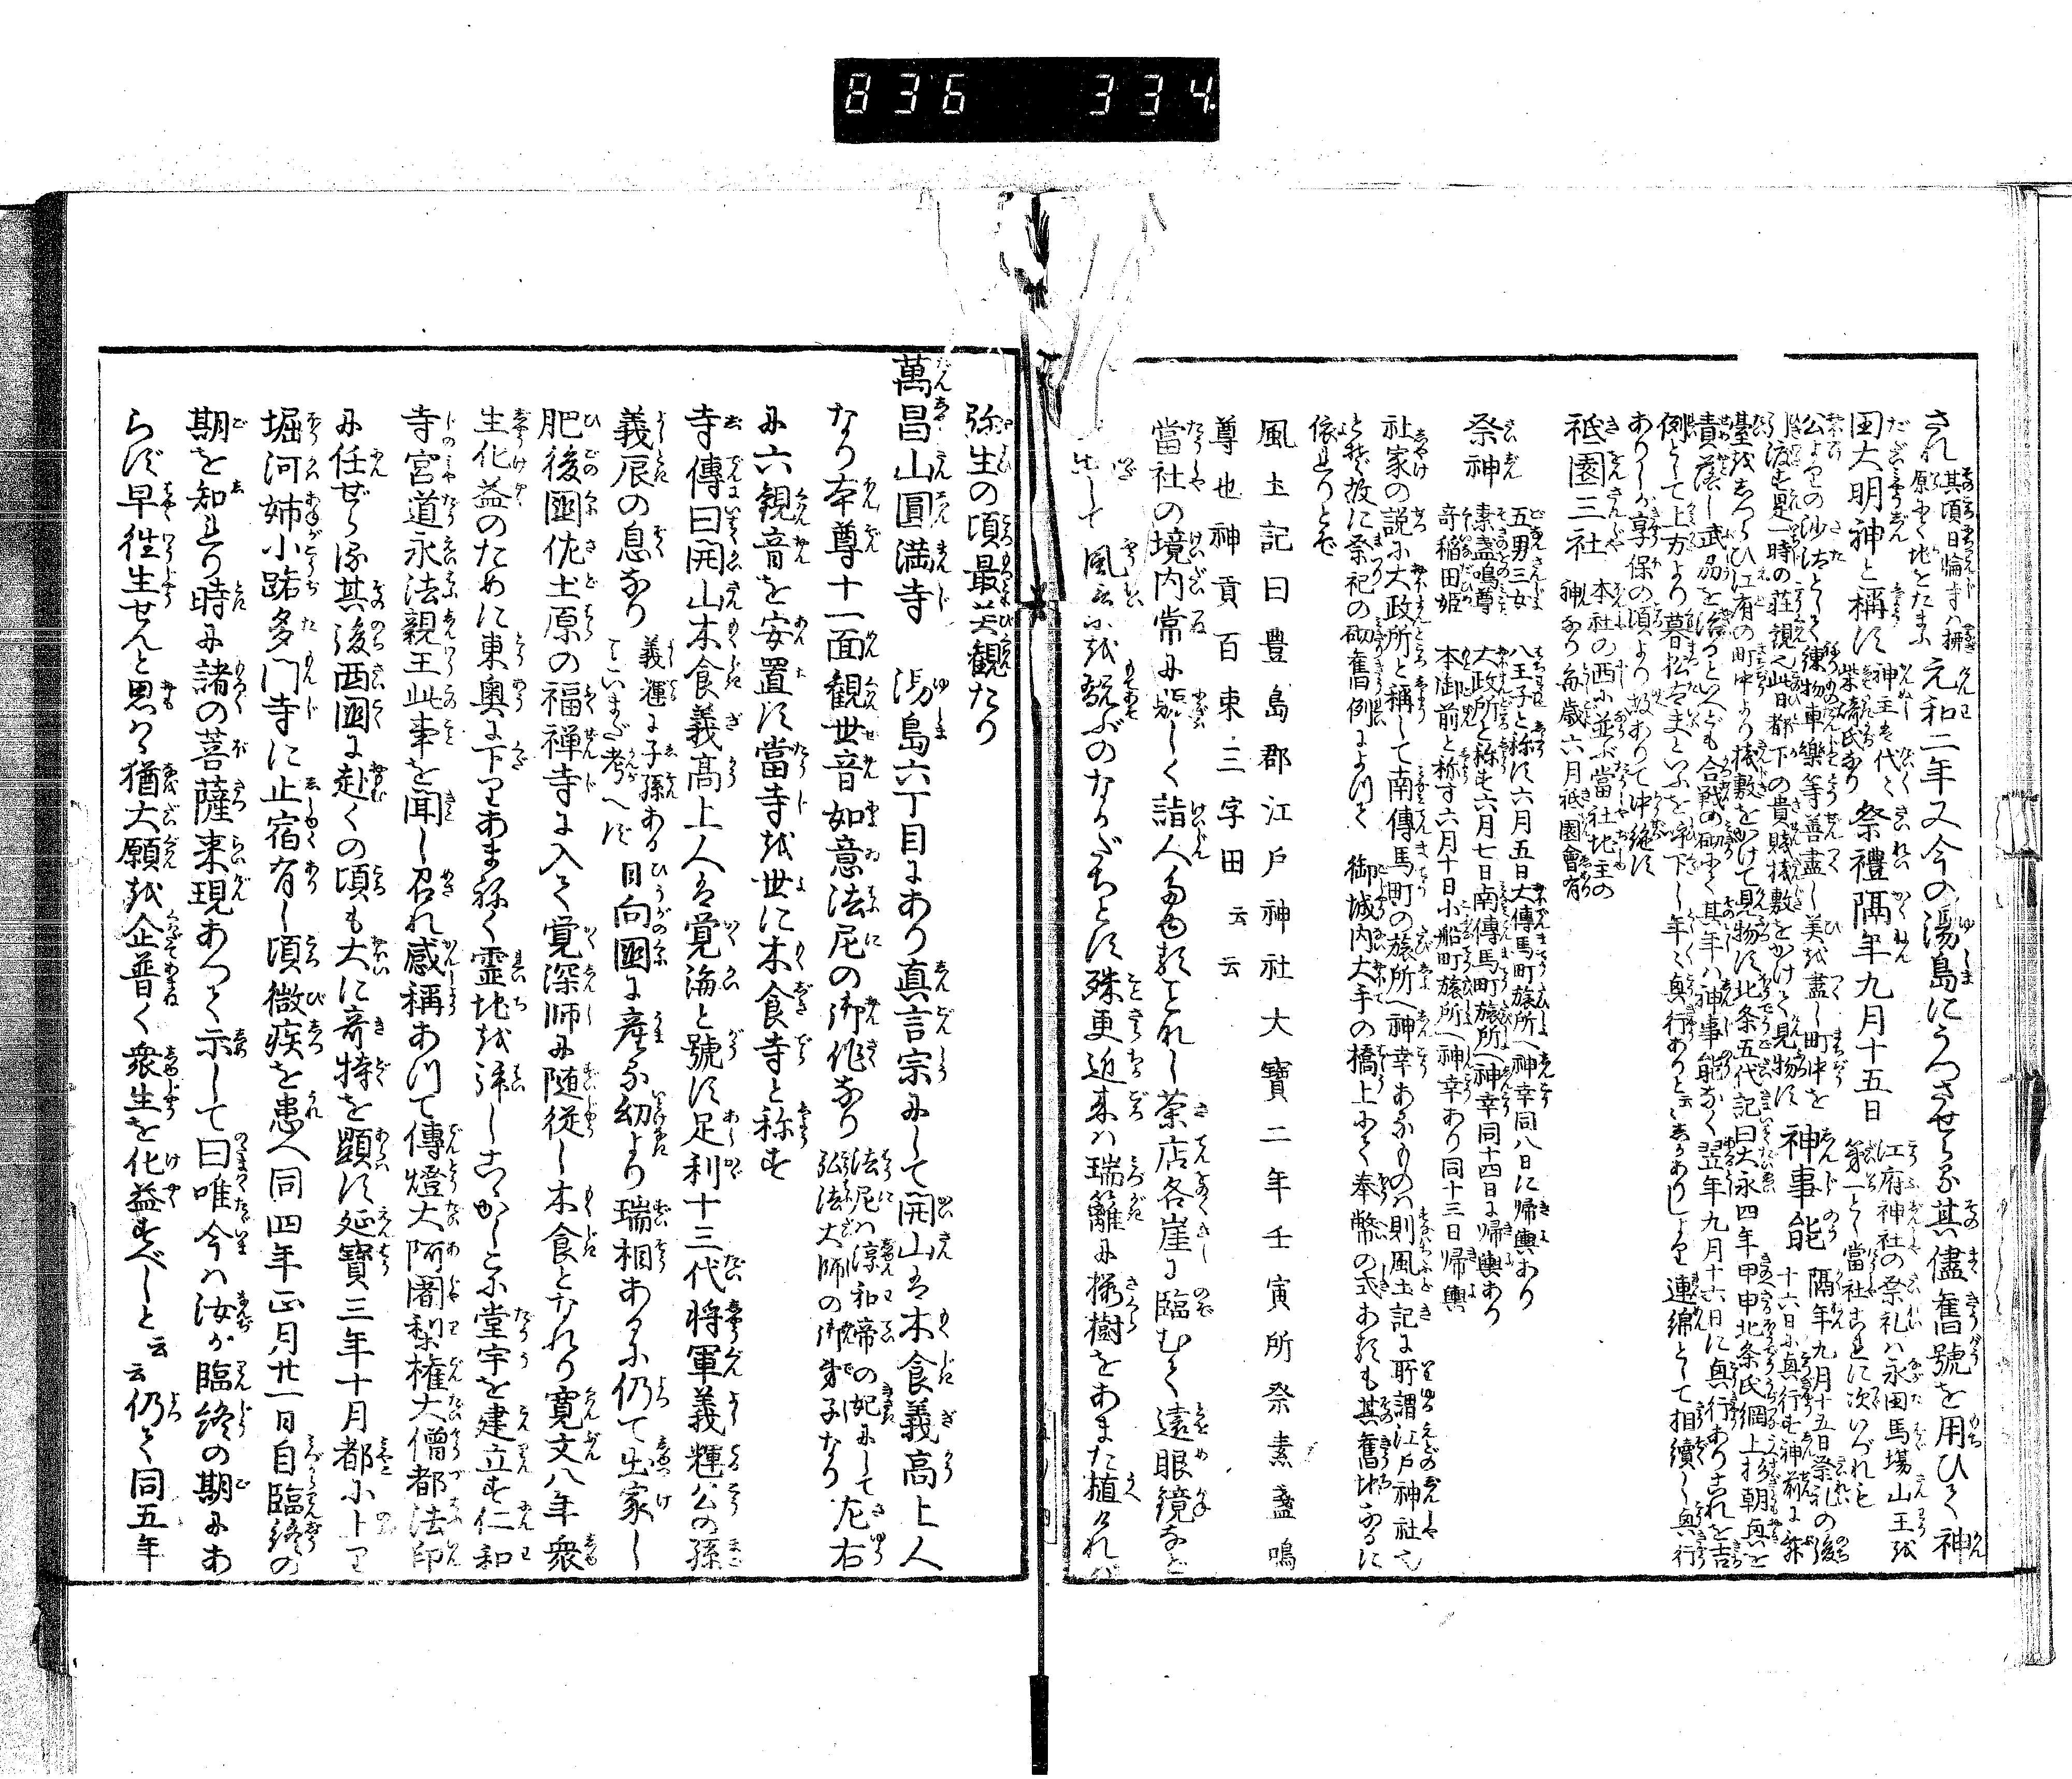 836 334
され 其頃日輪寺ハ柳原にて地をたまふ 元和二年又今の湯島にうつさせらる其儘舊號を用ひて神
田大明神と称す 神主ハ代々柴崎氏なり 祭禮隔年九月十五日 江府神社の祭礼ハ永田馬場山王を第一とし當社これに次いづれも
公よりの沙汰として練物車樂等善盡し美を盡し町中を
渡す是一時の荘観也此日都下の貴賤桟敷をかけて見物す 神事能 隔年九月十五日祭礼の後十六日に興行す神前に舞
臺をしつらひ江府の町中より桟敷をかけて見物す北条五代記曰大永四年甲申北条氏綱上杉朝興を
責落し武州を治るといへども合戦の砌にて其年ハ神事能なく翌年九月十六日に興行ありこれを吉
例として上方より暮松太夫といふを呼下し年々興行ありと云云しかありしより連綿として相續し興行
ありしが享保の頃より故ありて中絶す
祇園三社 本社の西に並ぶ當社地主の神なり毎歳六月祇園會有
祭神 五男三女 八王子と称す六月五日大傳馬町旅所へ神幸同八日に帰輿あり
素盞嗚尊 大政所と称す六月七日南傳馬町旅所へ神幸同十四日に帰輿あり
奇稲田姫 本御前と称す六月十日小船町旅所へ神幸あり同十三日帰輿
社家の説に大政所と称して南傳馬町の旅所へ神幸あるものハ則風土記に所謂江戸神社也
とぞ故に祭祀の砌舊例によつて 御城内大手の橋上にて奉幣の式あるも其舊地なるに
依れりとぞ
風土記曰豊島郡江戸神社大寶二年壬寅所祭素盞嗚
尊也神貢百束三字田云云
當社の境内常に賑しく詣人たゆることなし茶店各崖に臨むて遠眼鏡など
出して風景を翫ぶのなかだちとす殊更近来ハ瑞籬に桜樹をあまた植けれバ
弥生の頃最美観たり
萬昌山圓満寺 湯島六丁目にあり真言宗にして開山を木食義高上人
なり本尊十一面観世音如意法尼の御作なり 法尼ハ淳和帝の妃にして弘法大師の御弟子なり 左右
に六観音を安置す當寺を世に木食寺と称す
寺傳曰開山木食義高上人ハ覚海と號す足利十三代将軍義輝公の孫
義辰の息なり 義運に子孫あることいまだ考へず 日向國に産る幼より瑞相あるに仍て出家し
肥後國佐土原の福禅寺に入て覚深師に随従し木食となれり寛文八年衆
生化益のために東奥に下りあまねく霊地を拝しこゝかしこに堂宇を建立す仁和
寺宮道永法親王此事を聞し召れ感稱あつて傳燈大阿闍梨権大僧都法印
に任ぜらる其後西國に赴くの頃も大に奇特を顕す延寶三年十月都に上り
堀河姉小路多門寺に止宿有し頃微疾を患へ同四年正月廿一日自臨終の
期を知れり時に諸の菩薩来現あつて示して曰唯今ハ汝が臨終の期にあ
らず早往生せんと思ハヾ猶大願を企普く衆生を化益すべしと云云仍て同五年